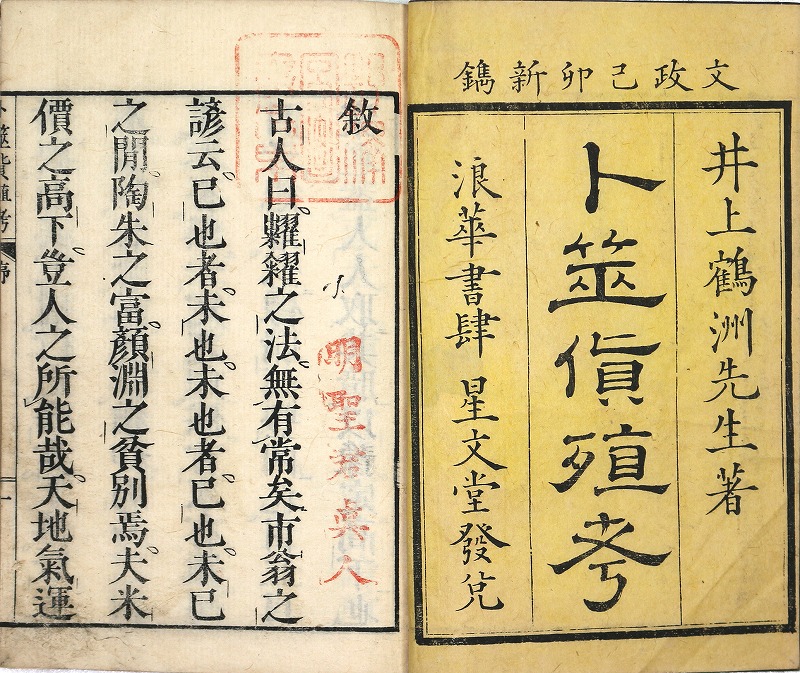 文政己卯新鐫
井上鶴洲先生著
卜筮貨殖考
浪華書肆 星文堂發兌
敘
古人曰糶糴之法無有常矣市翁之
諺云已也者未也未也者已也未已
之閒陶朱之富顏淵之貧別焉夫米
價之高下豈人之所能哉天地氣運
明聖君眞人
卜筮貨殖考 序 一